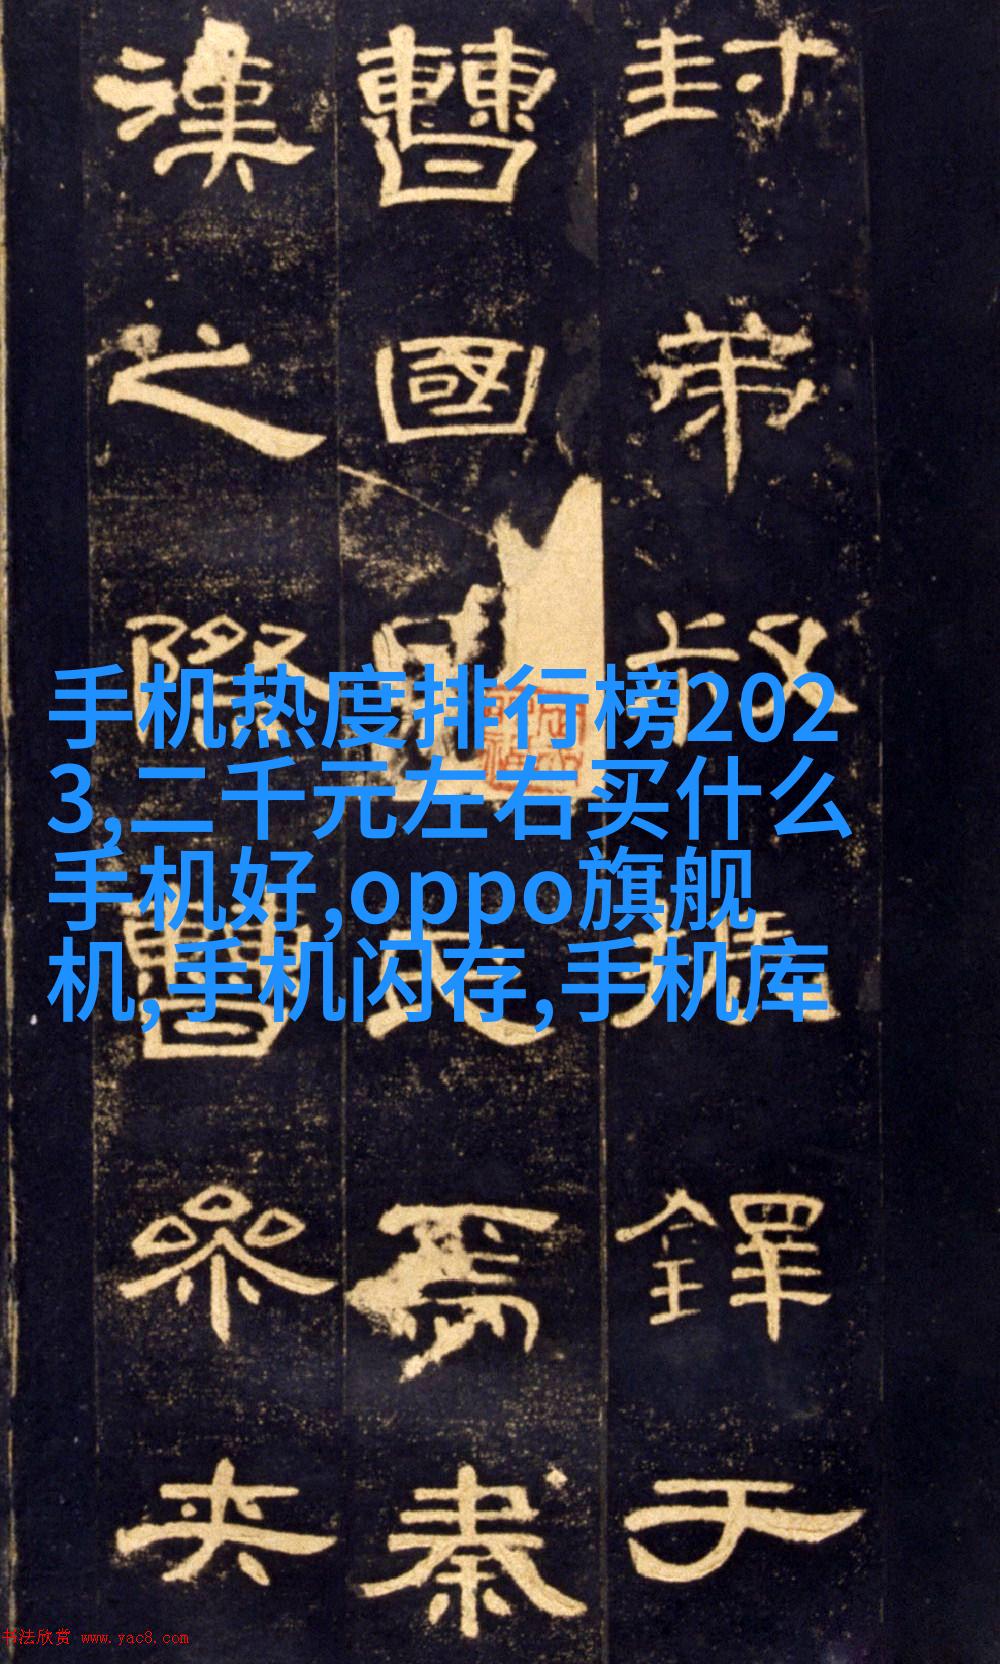 封弟叔振鐸于
曹國因氏焉秦
漢之際曹參夾
手机热度排行榜202
3,二千元左右买什么
手机好,oppo旗舰
机,手机闪存,手机库
书法欣赏 www.yac8.com